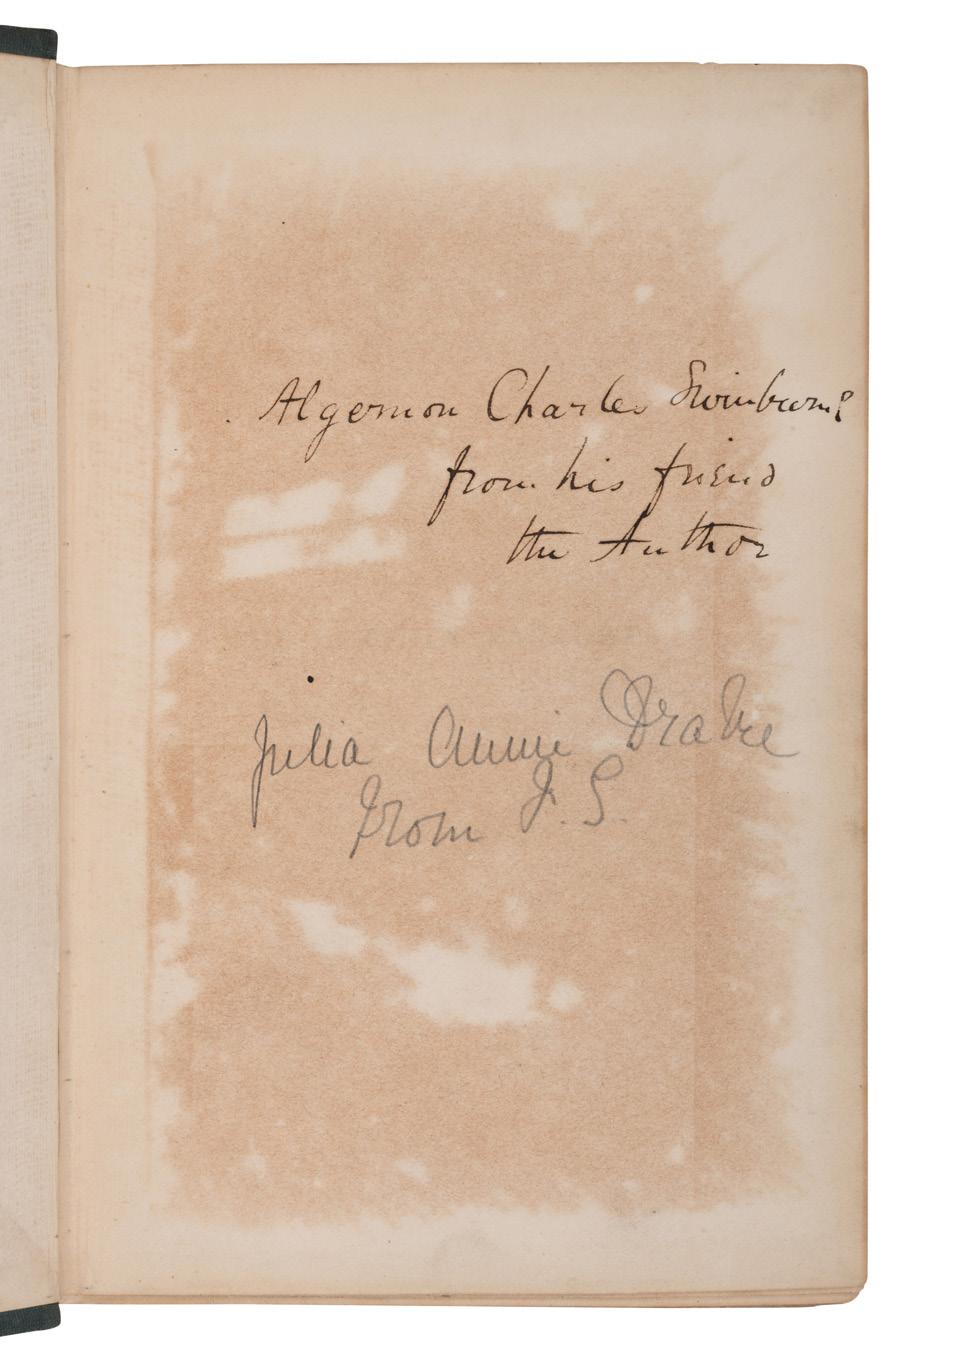 Algernon Charles Swinburne
from his friend
the Author
Julia Annie Drake
from I. S.